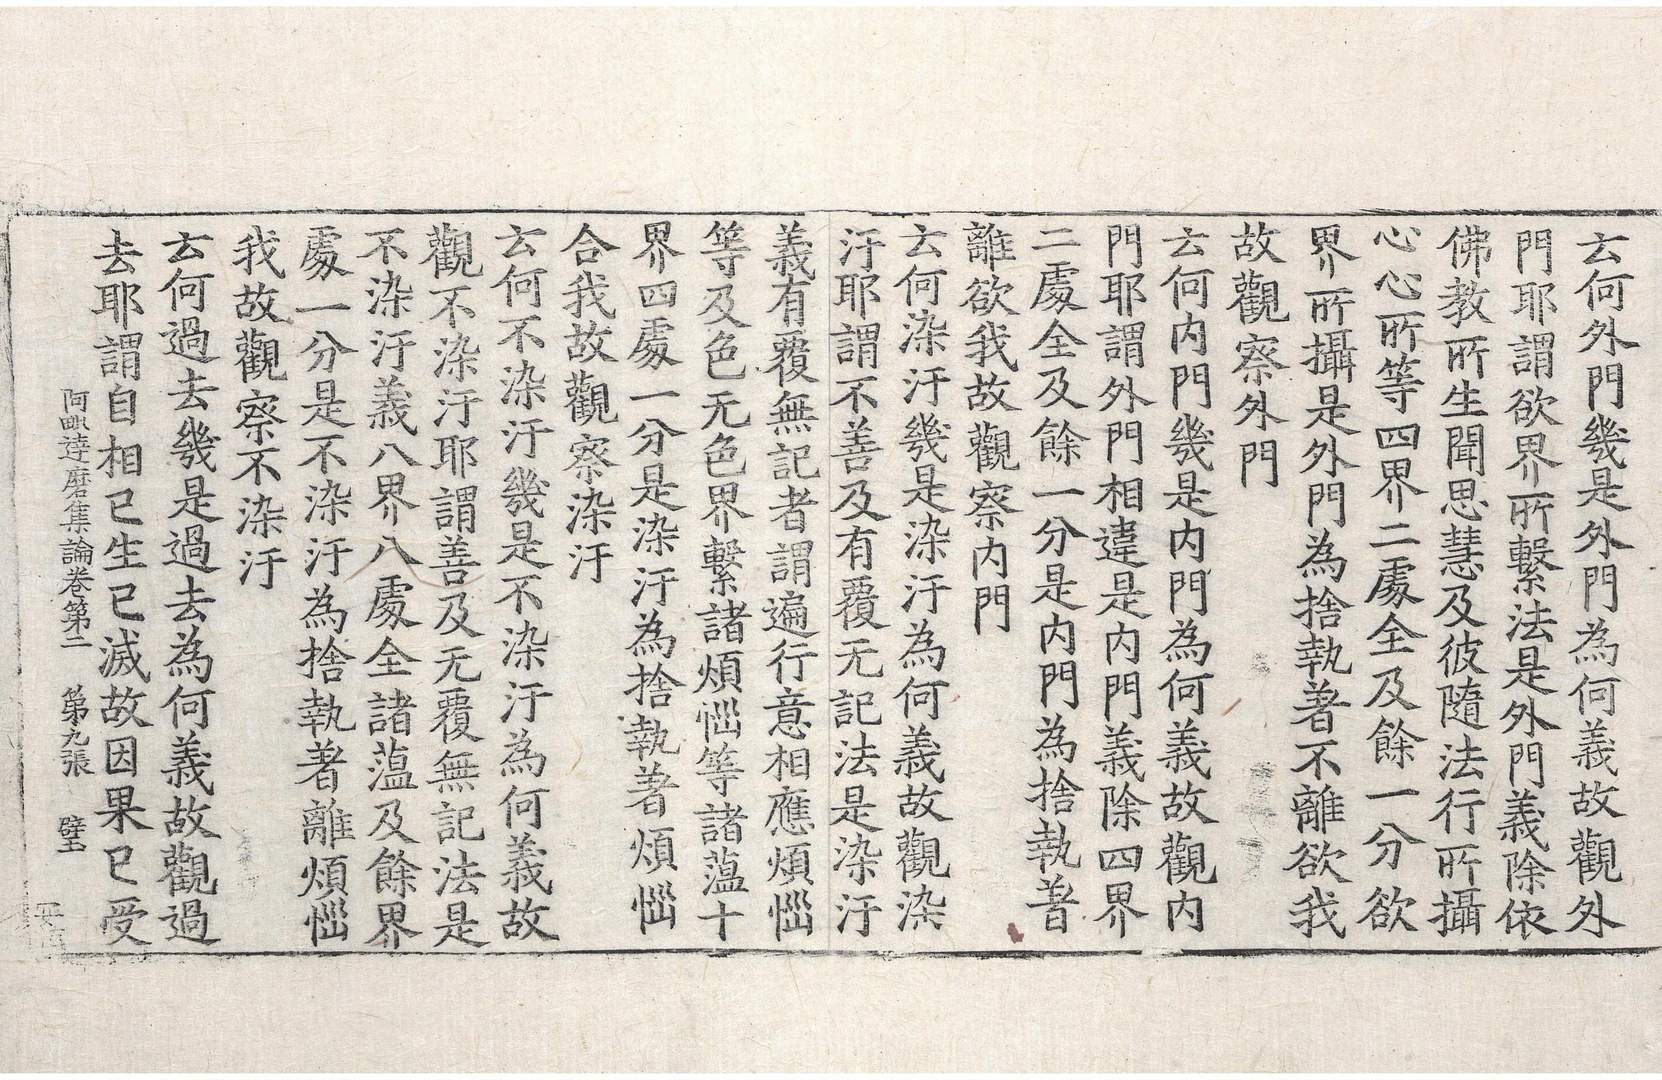 云何外門幾是外門為何義故觀外
門耶謂欲界所繫法是外門義除依
佛教所生聞思慧及彼隨法行所攝
心心所等四界二處全及餘一分欲
界所攝是外門為捨執著不離欲我
故觀察外門
云何内門幾是内門為何義故觀内
門耶謂外門相違是内門義除四界
二處全及餘一分是内門為捨執著
離欲我故觀察内門
云何染汙幾是染汙為何義故觀染
汙耶謂不善及有覆无記法是染汙
義有覆無記者謂遍行意相應煩惱
等及色无色界繫諸煩惱等諸蕰十
界四處一分是染汙為捨執著煩惱
合我故觀察染汙
云何不染汙幾是不染汙為何義故
觀不染汙耶謂善及无覆無記法是
不染汙義八界八處全諸蕰及餘界
處一分是不染汙為捨執著離煩惱
我故觀察不染汙
云何過去幾是過去為何義故觀過
去耶謂自相已生已滅故因果已受
阿毗達磨集論卷第二　第九張　璧